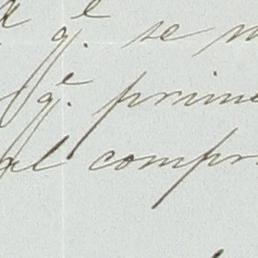 q.e se
q.e prime
al compr